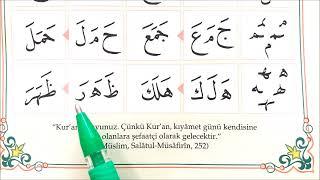 جَ مَ عَ جَمَعَ حَ مَ لَ حَمَلَ
هَ لَ كَ هَلَكَ ظَ هَ رَ ظَهَرَ
"Kur'an Çünkü Kur'an, kıyâmet günü kendisine
olanlara şefaatçi olarak gelecektir."
Müslim, Salâtul-Müsâfirîn, 252)